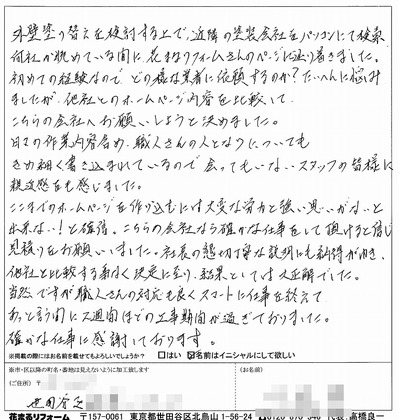 外壁塗り替えを検討する上で、近隣の塗装会社をパソコンにて検索
何社か眺めている間に花まるリフォームさんのページに辿り着きました。
初めての経験なので、どの様な業者に依頼するのか?たいへんに悩み
ましたが、他社とのホームページ内容を比較して
こちらの会社へお願いしようと決めました。
日々の作業内容含め、職人さんの人となりについても
きめ細く書き込まれているので会ってもいないスタッフの皆様に
親近感をも感じました。
ここまでのホームページを作り込むには大変な労力と強い思いがないと
出来ない!と確信。こちらの会社なら確かな仕事をして頂けると信じ
見積りをお願いしました。社長の懇切丁寧な説明にも納得が行き、
他社と比較する事なく決定に至り、結果としては大正解でした。
当然ですが職人さんの対応も良くスマートに仕事を終えて
あっと言う間に2週間ほどの工事期間が過ぎておりました。
確かな仕事に感謝しております。
※掲載の際にはお名前を載せてもよろしいでしょうか? □はい ☑名前はイニシャルにして欲しい
※市・区以降の町名・番地は見えないように加工致します
(ご住所) 〒
(お名前)
世田谷区
花まるリフォーム 〒157-0061 東京都世田谷区北烏山1-56-24 0120-870-546 代表.高橋良一